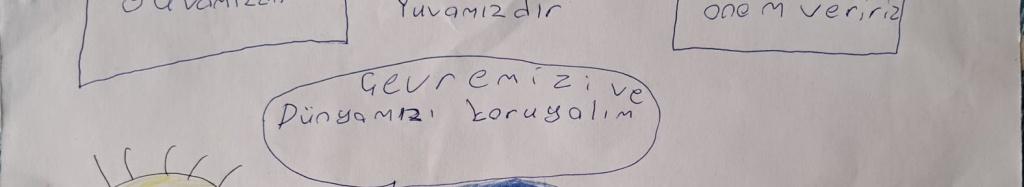 Yuvamızdır
önem veririz
Çevremizi ve
Dünyamızı koruyalım